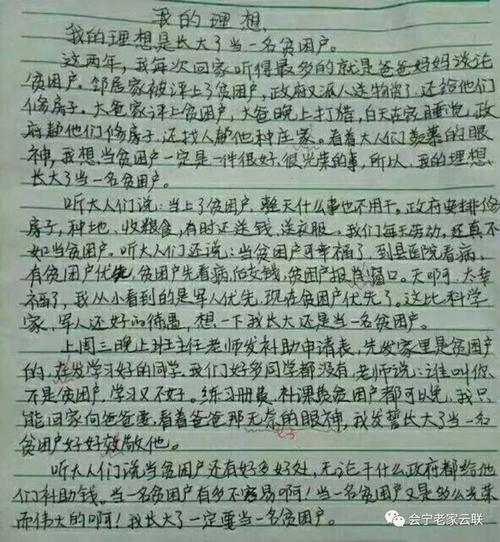 我的理想
我的理想是长大了当一名贫困户。
这两年,我每次回家听得最多的就是爸爸妈妈谈论
贫困户。邻居家被评上了贫困户,政府又派人送物资了,还给他们
修房子。大爸家评上贫困户,大爸晚上打牌,白天在家睡觉,政
府帮他们修房子,还找人帮他种庄家。看着大人们羡慕的眼
神,我想当贫困户一定是一件很好,很光荣的事,所以,我的理想
长大了当一名贫困户。
听大人们说:当上了贫困户,整天什么事也不用干。政府安排修
房子,种地、收粮食,有时还送钱、送衣服。我们每天劳动,还真不
如当贫困户。听大人们还说:当贫困户可幸福了,到县医院看病,
有贫困户优先,贫困户先看病后交钱,贫困户报销窗口。天啊!太幸
福了,我从小看到的是军人优先,现在贫困户优先了。这比科学
家,军人还好的待遇,想一下我长大还是当一名贫困户。
上周三晚上班主任老师发补助申请表,先发家里是贫困户
的,在发学习好的同学,我们好多同学都没有,老师说:谁叫你
不是贫困户,学习又不好。练习册费、补课费贫困户都可以免,我只
能回家向爸爸要,看着爸爸那无奈的眼神,我发誓长大了当一名
贫困户好好孝敬他。
听大人们说当贫困户还有好多好处,无论干什么政府都给他
们补助钱。当一名贫困户有多不容易啊!当一名贫困户又是多么光荣
而伟大的啊!我长大了一定要当一名贫困户。
会宁老家云联